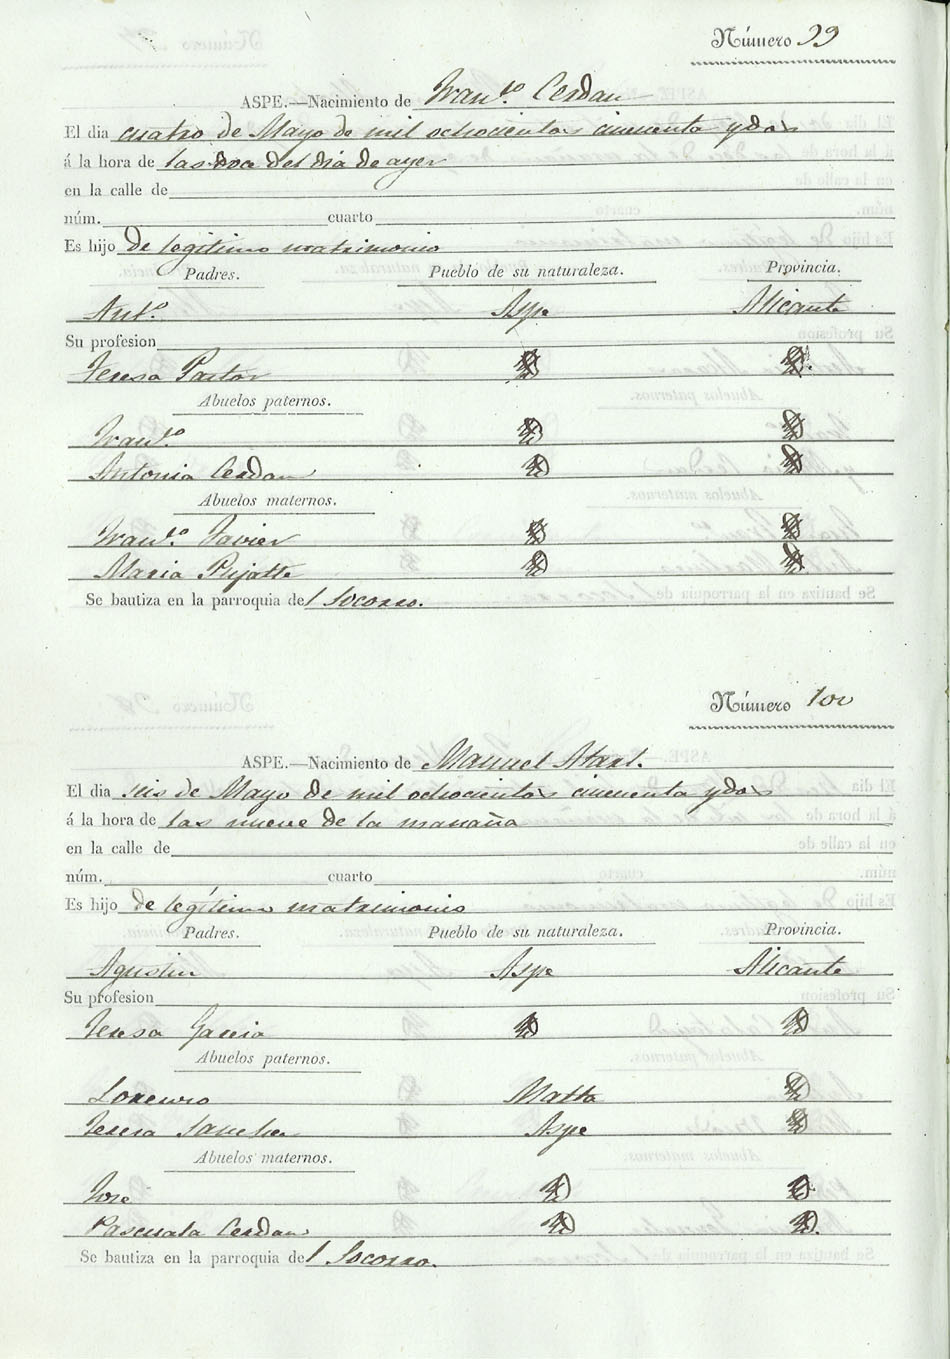 Número 99
ASPE.—Nacimiento de Fran.co Cerdan
El dia cuatro de Mayo de mil ochocientos cincuenta y dos
á la hora de las doce del dia de ayer
en la calle de
núm. cuarto
Es hijo de legitimo matrimonio
Padres. Pueblo de su naturaleza. Provincia.
Ant.o Aspe Alicante
Su profesion
Teresa Pastor
Abuelos paternos.
Fran.co
Antonia Cerdan
Abuelos maternos.
Fran.co Javier
Maria
Se bautiza en la parroquia del Socorro.
Número 100
ASPE.—Nacimiento de Manuel
El dia seis de Mayo de mil ochocientos cincuenta y dos
á la hora de las nueve de la mañana
en la calle de
núm. cuarto
Es hijo de legítimo matrimonio
Padres. Pueblo de su naturaleza. Provincia.
Agustin Aspe Alicante
Su profesion
Teresa Garcia
Abuelos paternos.
Lorenzo
Teresa Sanchez Aspe
Abuelos maternos.
Jose
Pascuala Cerdan
Se bautiza en la parroquia del Socorro.